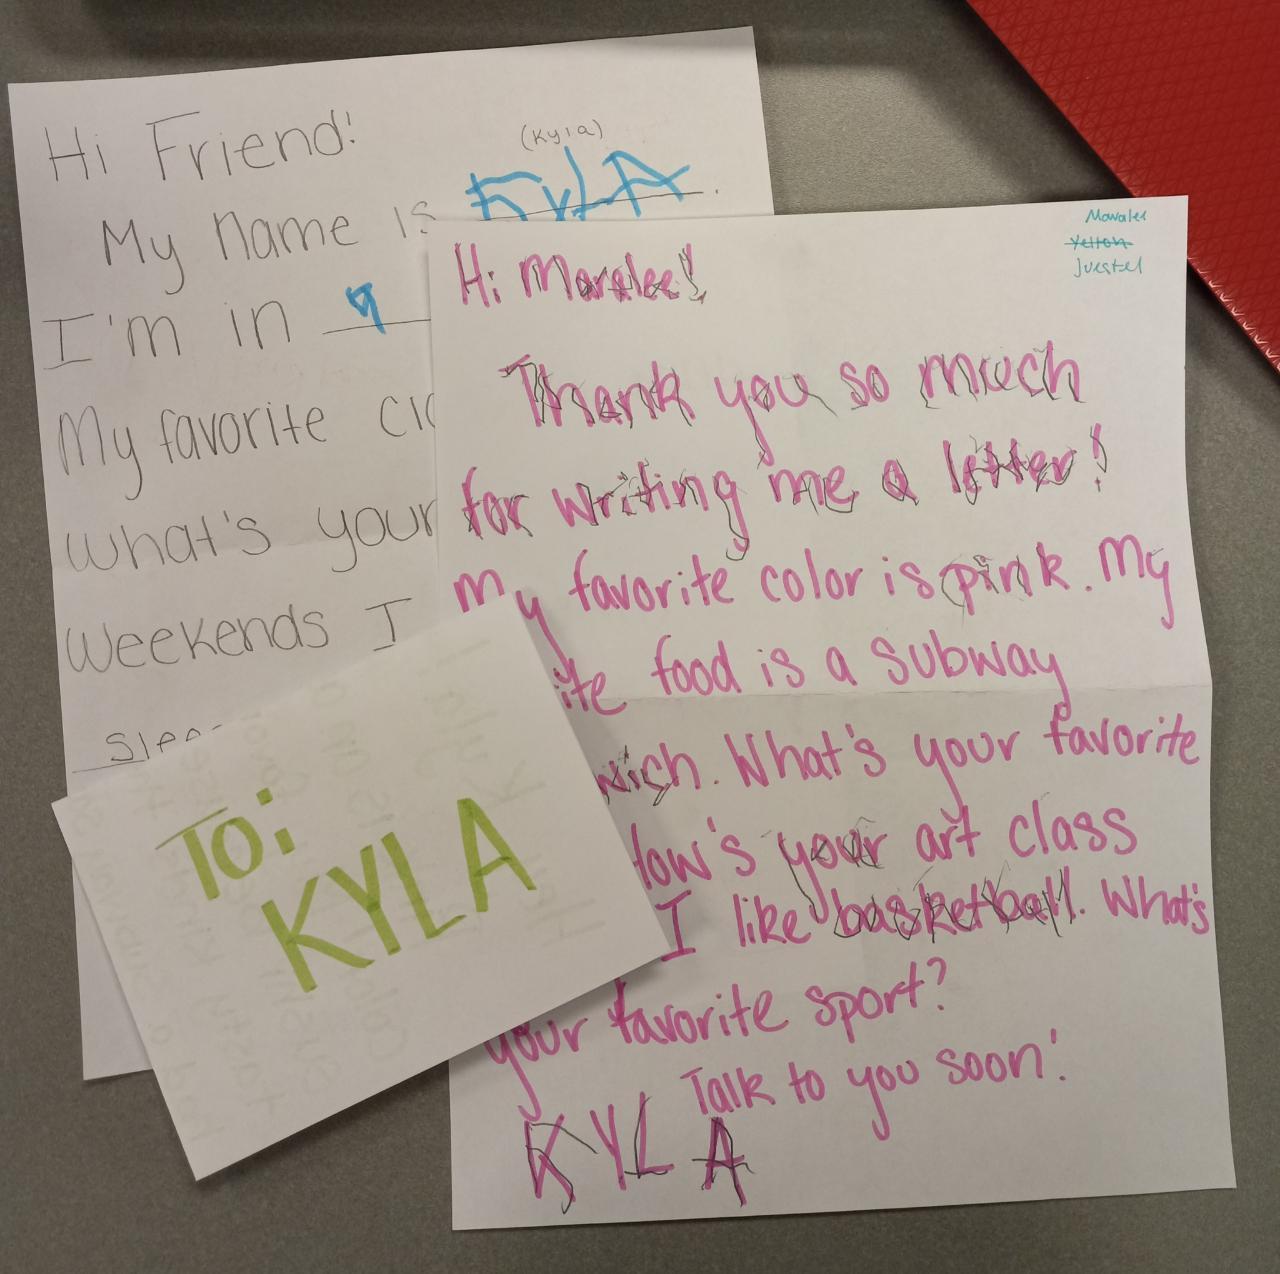 Hi Friend!
(Kyla)
My name is KyLA.
I'm in 9
My favorite
What's your
Weekends I
Maralee
Yelton
Juestel
Hi Maralee!
Thank you so much
for writing me a letter!
My favorite color is pink. My
ite food is a subway
wich. What's your favorite
How's your art class
I like basketball. What's
your favorite sport?
Talk to you soon!
KYLA
To:
KYLA